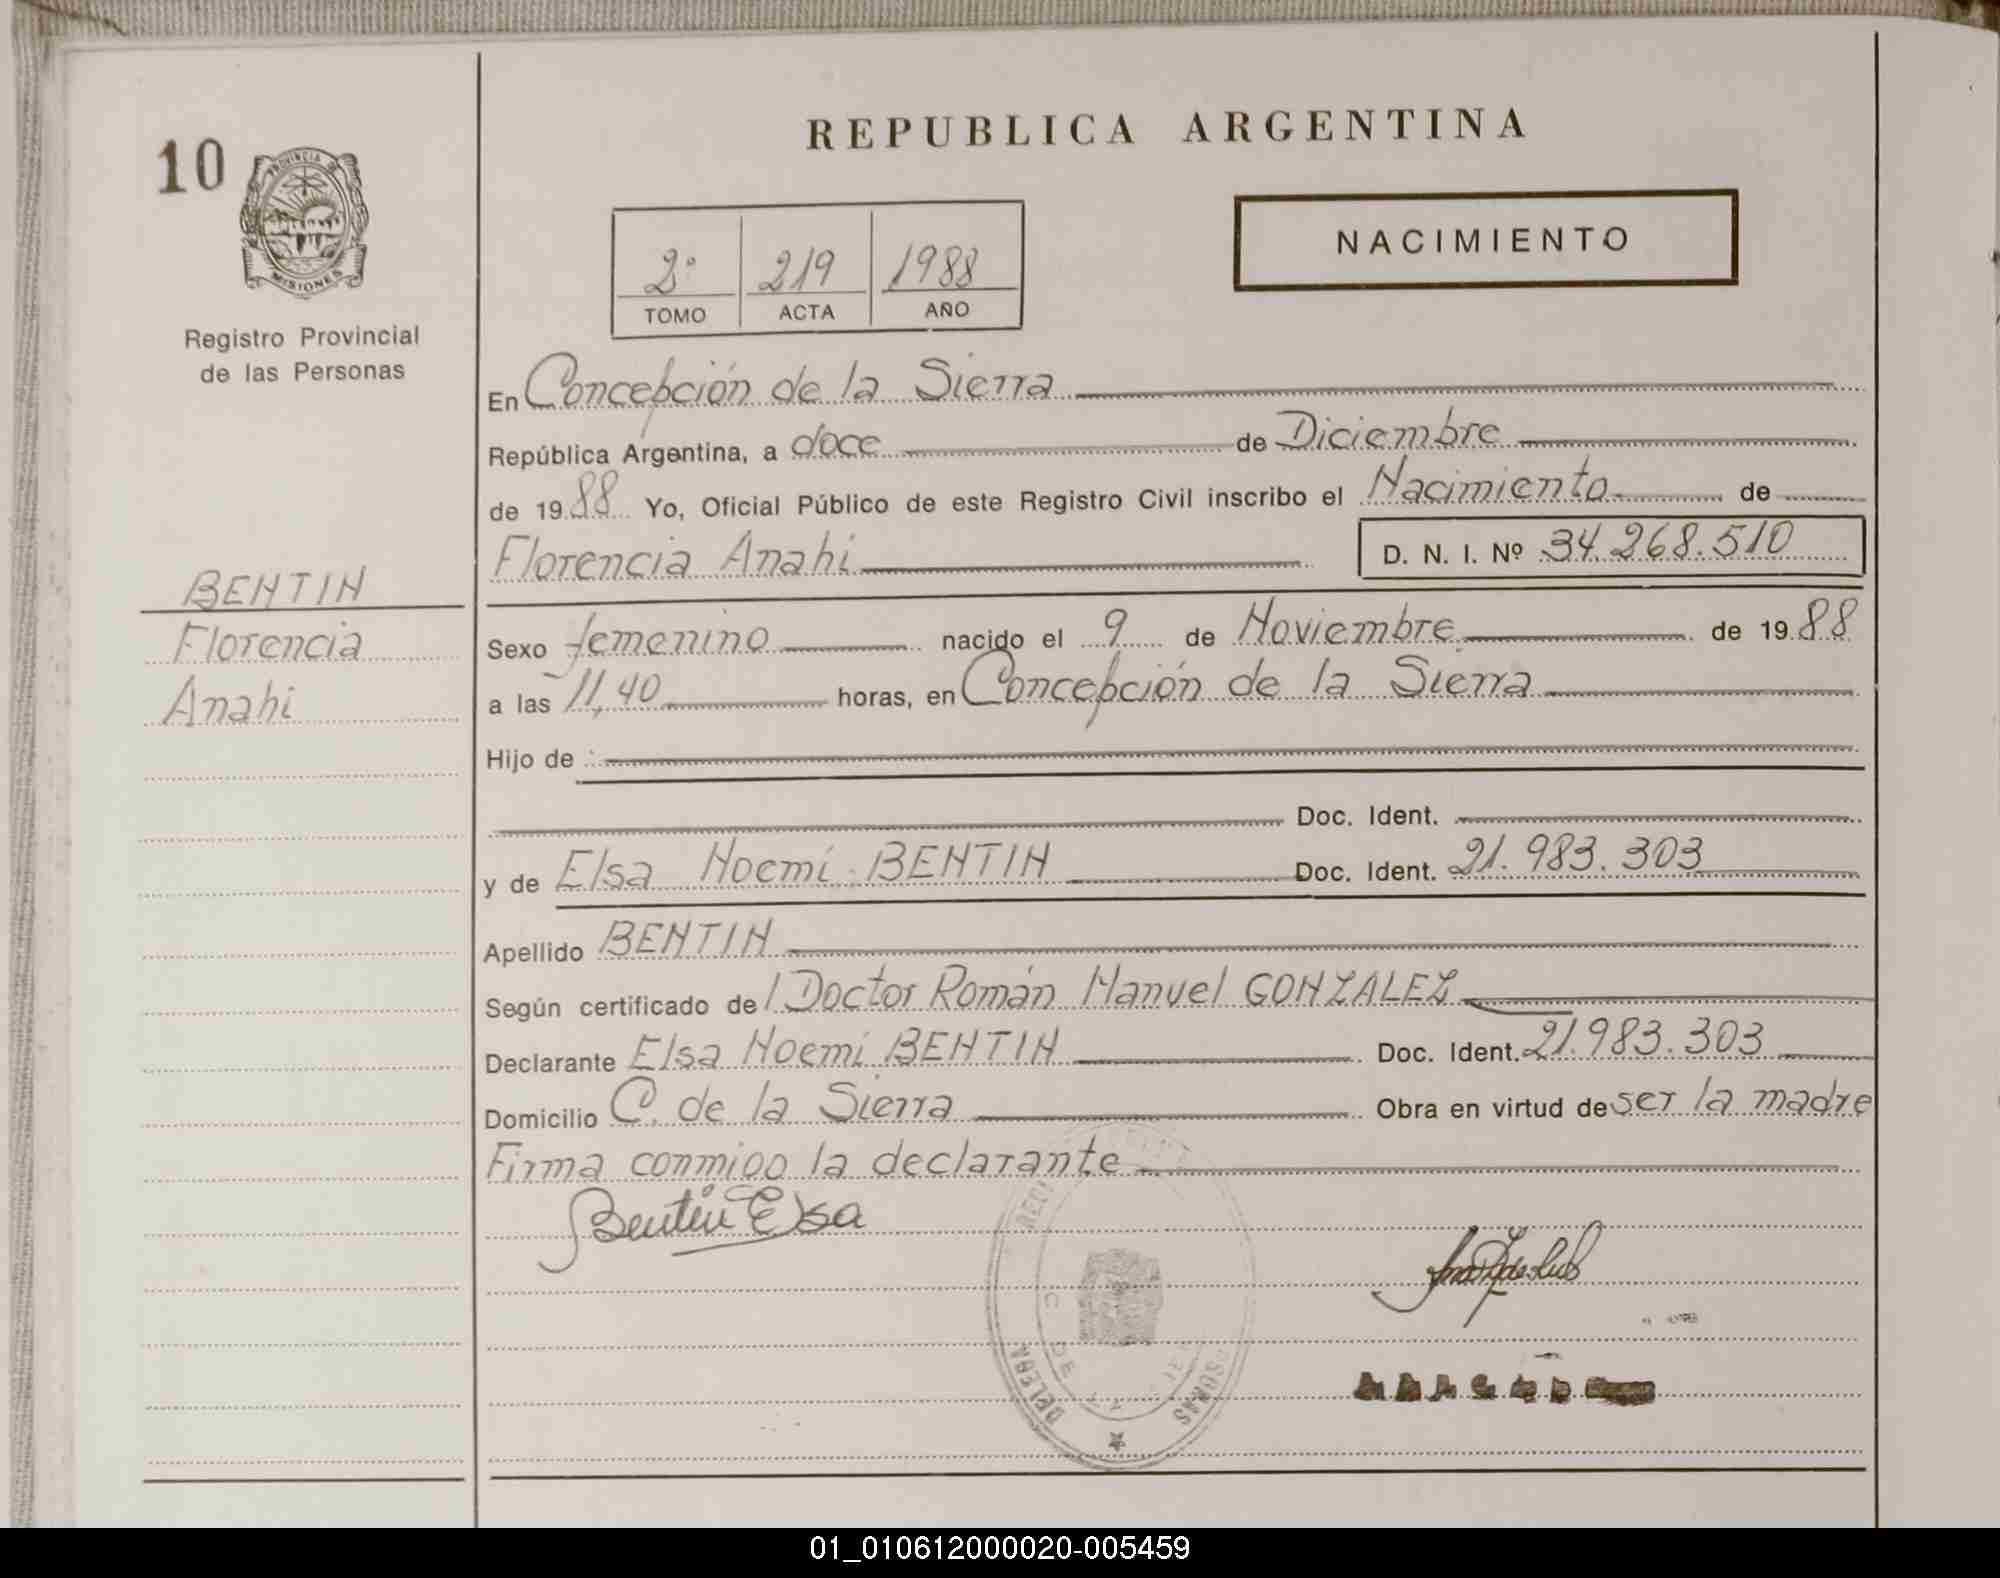 REPUBLICA ARGENTINA
10
PROVINCIA DE
MISIONES
NACIMIENTO
2º 219 1988
TOMO ACTA AÑO
Registro Provincial
de las Personas
En Concepción de la Sierra
República Argentina, a doce de Diciembre
de 1988 Yo, Oficial Público de este Registro Civil inscribo el Nacimiento de
Florencia Anahi D. N. I. Nº 34.268.510
BENTIN
Florencia
Anahi
Sexo femenino nacido el 9 de Noviembre de 1988
a las 11,40 horas, en Concepción de la Sierra
Hijo de
Doc. Ident.
y de Elsa Noemí BENTIN Doc. Ident. 21.983.303
Apellido BENTIN
Según certificado del Doctor Román Manuel GONZALEZ
Declarante Elsa Noemí BENTIN Doc. Ident. 21.983.303
Domicilio C. de la Sierra Obra en virtud de ser la madre
Firma conmigo la declarante
Bentin Elsa
01_010612000020-005459